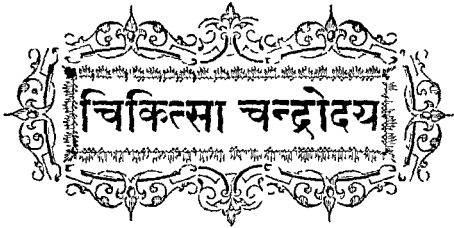 चिकित्सा चन्द्रोदय